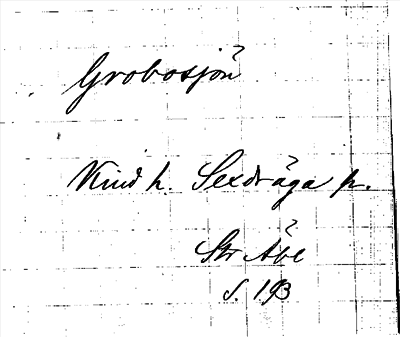 Grobosjön
Kind h. Sexdräga p.
Str Åbe
s. 193